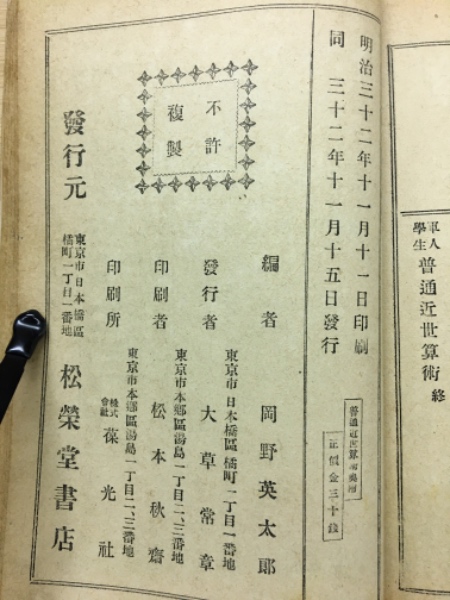 軍人
學生
普通近世算術 終
明治三十二年十一月十一日印刷
同 三十二年十一月十五日發行
正價金三十錢
不許
複製
編者 岡野英太郎
東京市日本橋區橘町一丁目一番地
發行者 大草常章
東京市本鄕區湯島一丁目二、三番地
印刷者 松本秋齋
東京市本鄕區湯島一丁目二、三番地
印刷所 株式會社 葆光社
東京市日本橋區
橘町一丁目一番地
發行元 松榮堂書店